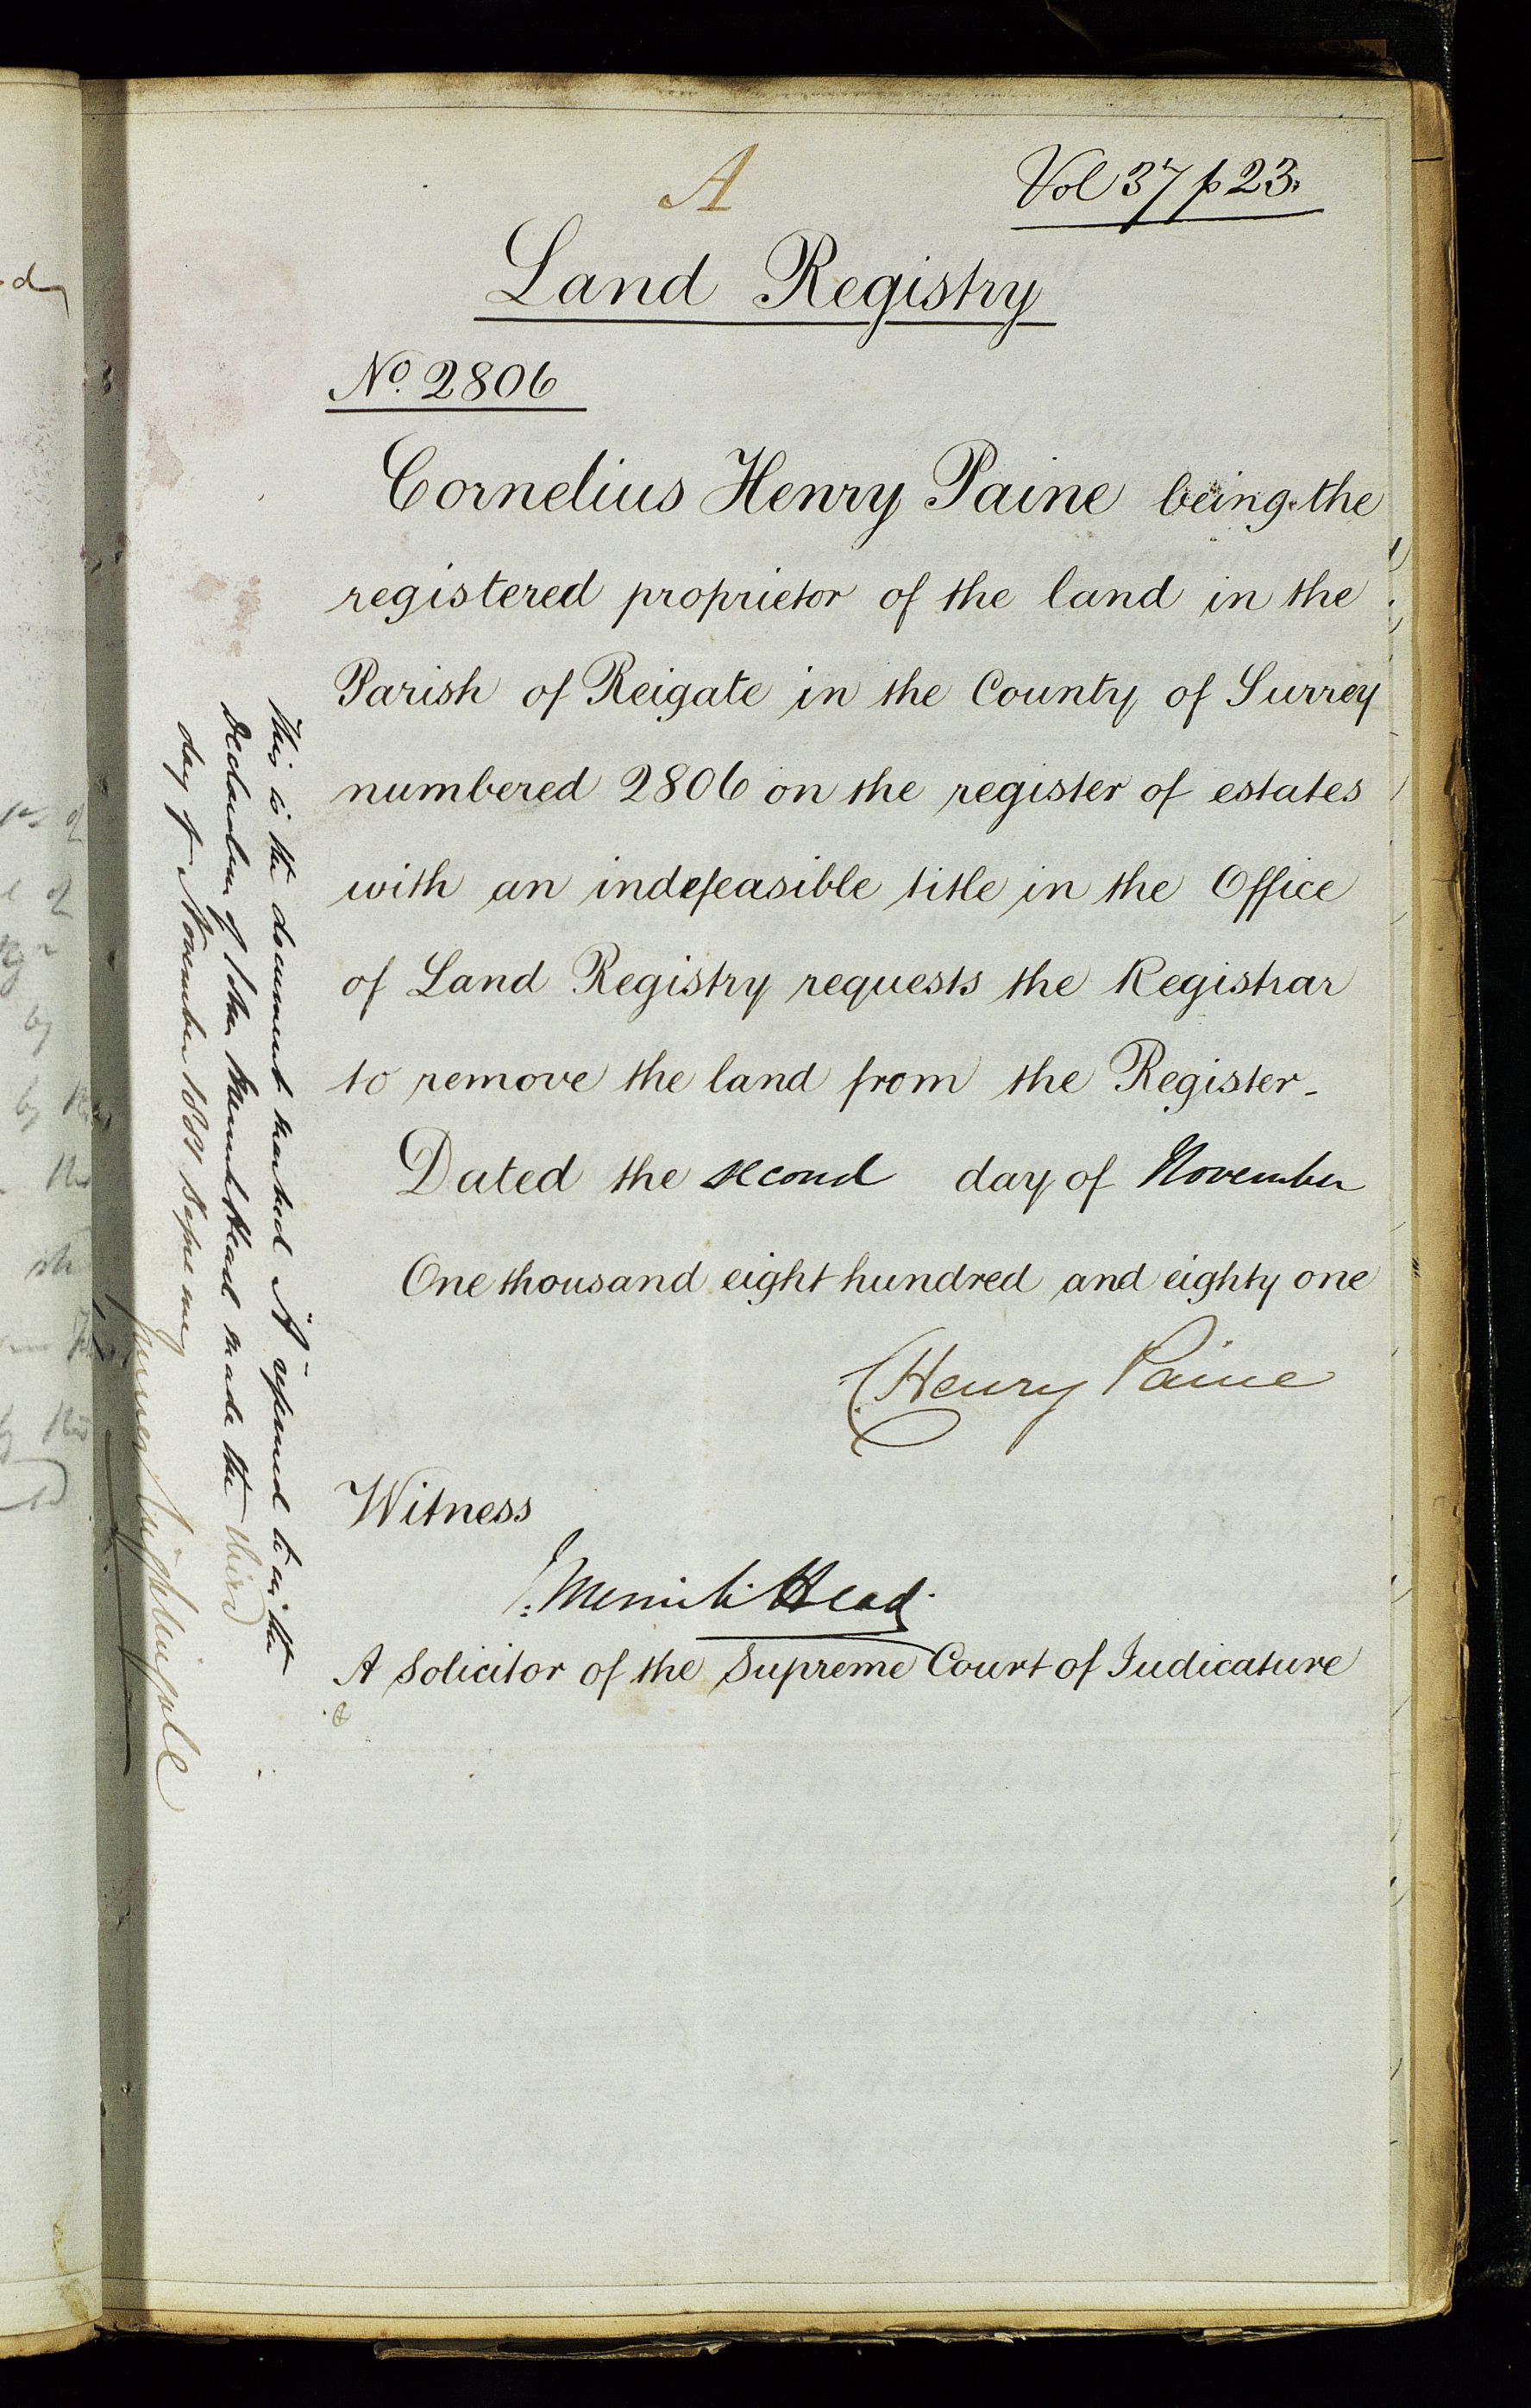 A
Vol 37 p 23.
Land Registry
No. 2806
Cornelius Henry Paine being the
registered proprietor of the land in the
Parish of Reigate in the County of Surrey
numbered 2806 on the register of estates
with an indefeasible title in the Office
of Land Registry requests the Registrar
to remove the land from the Register_
Dated the second day of November
One thousand eight hundred and eighty one
C Henry Paine
Witness
Head
A Solicitor of the Supreme Court of Judicature
This is the document marked "A" referred to in the
Declaration of John Head made the third
day of November 1881 Before me
James Nightingale